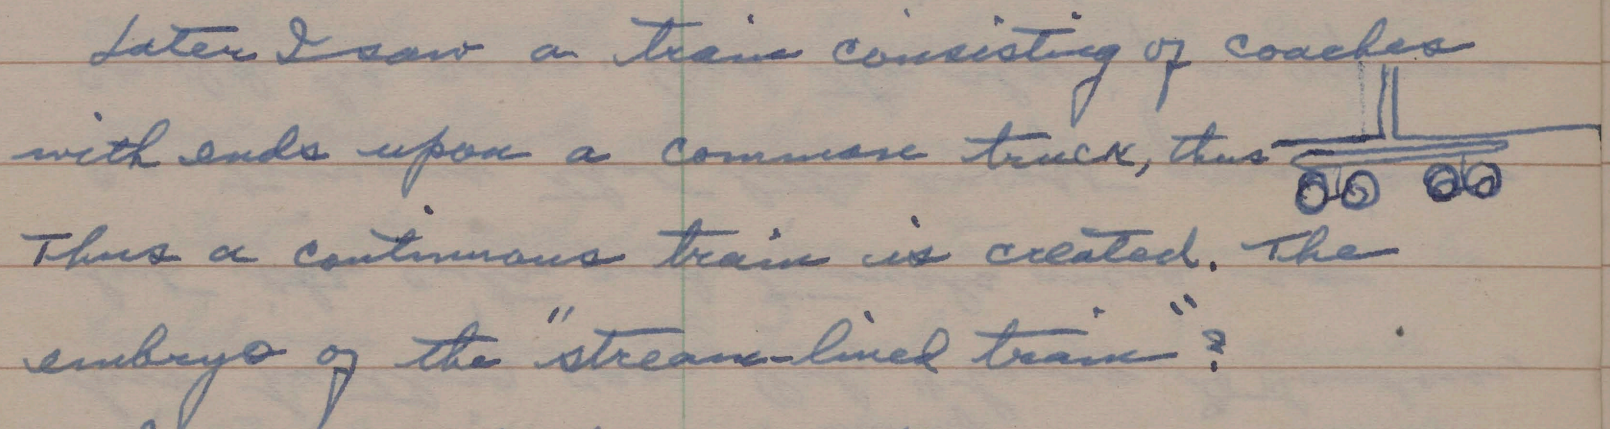 Later I saw a train consisting of coaches
with ends upon a common truck, thus
Thus a continuous train is created. The
embryo of the "stream-lined train"?